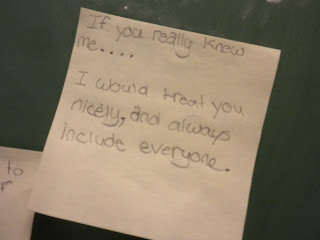 If you really knew
me....
I would treat you
nicely, and always
include everyone.
to
r